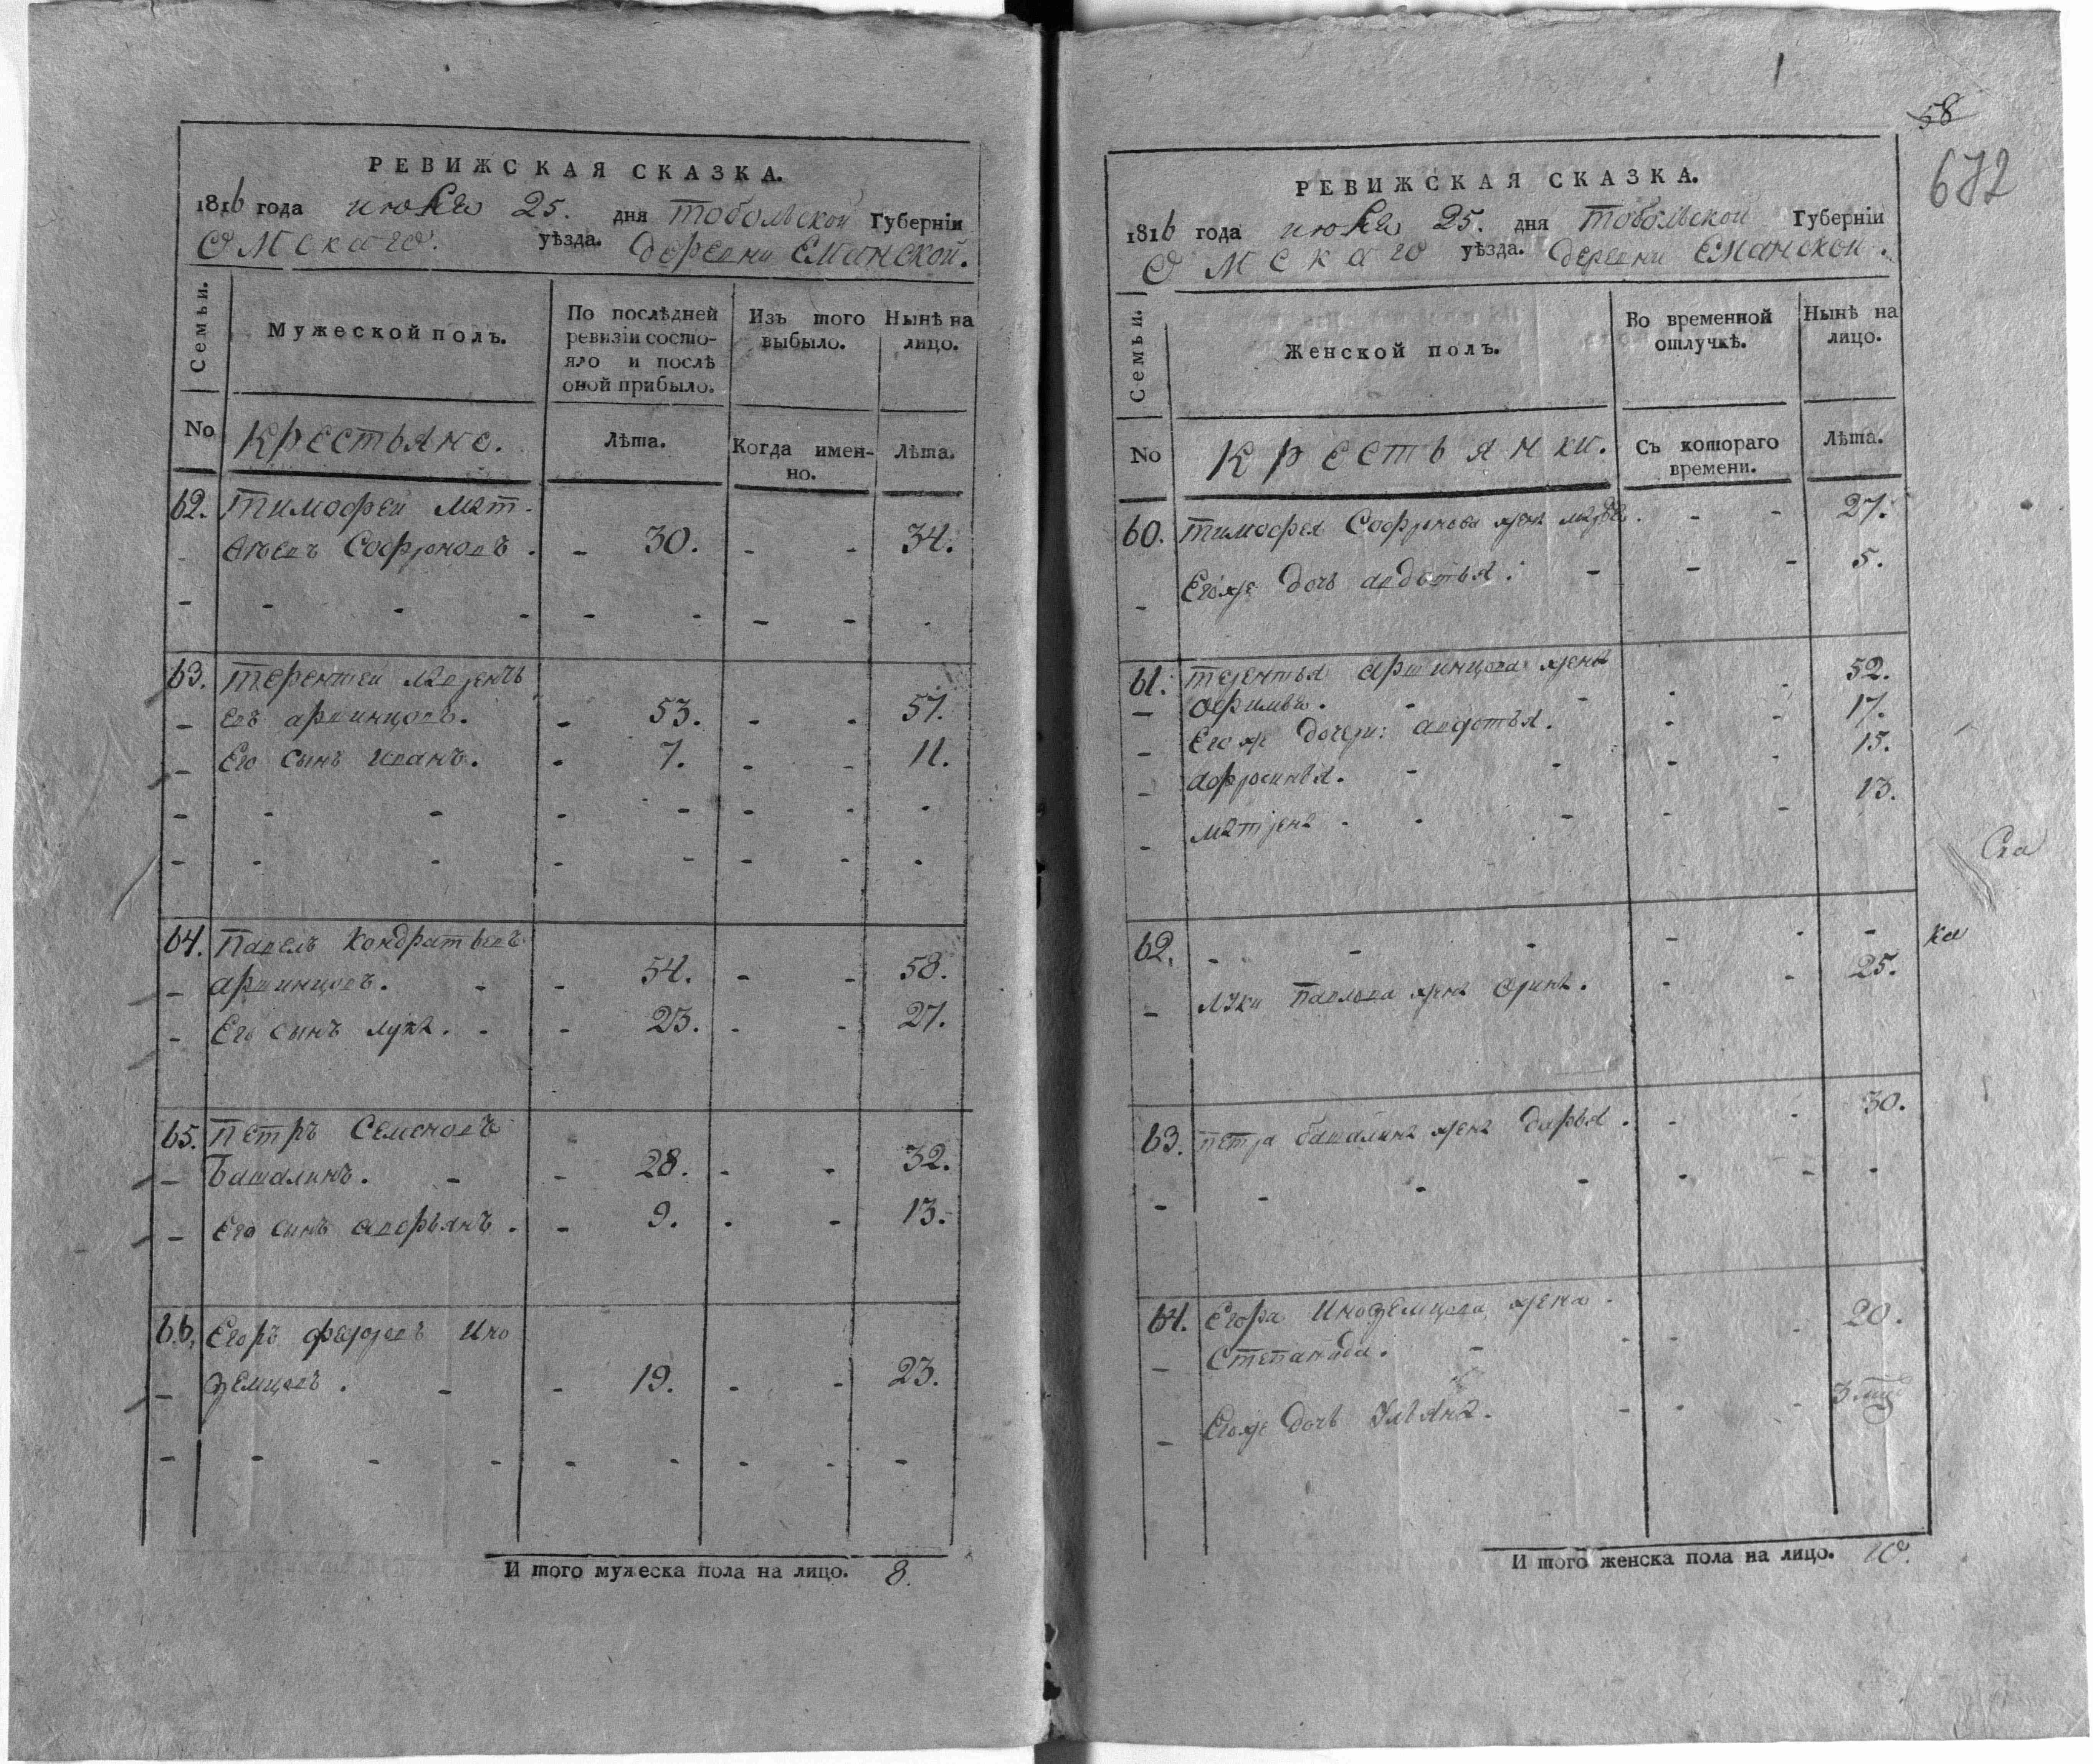 РЕВИЖСКАЯ СКАЗКА.
1816 года июля 25. дня Тобольской Губерніи
Омскаго. уѣзда. деревни Еманской.
Семьи.
Мужеской полъ.
По послѣдней ревизіи состо-
яло и послѣ
оной прибыло.
Изъ того
выбыло.
Нынѣ на
лицо.
No
Крестьяне.
Лѣта.
Когда имен-
но.
Лѣта.
62. Тимофей Мат-
веевъ Софроновъ. 30. 34.
63. Терентей
евъ аршинцовъ. 53. 57.
Его сынъ иванъ. 7. 11.
64. Павелъ Кондратьевъ
аршинцовъ. 54. 58.
Его сынъ лука. 23. 27.
65. Петръ Семеновъ
Башалинъ. 28. 32.
Его сынъ аверьянъ. 9. 13.
66. Егоръ федоровъ Ино
земцовъ. 19. 23.
И того мужеска пола на лицо. 8.
58
672
РЕВИЖСКАЯ СКАЗКА.
1816 года июля 25. дня Тобольской Губерніи
Омскаго уѣзда. деревни Еманской.
Семьи.
Женской полъ.
Во временной
отлучкѣ.
Нынѣ на
лицо.
No
Крестьянки.
Съ котораго
времени.
Лѣта.
60. Тимофея Софронова жена 27.
Егоже дочь авдотья. 5.
61. терентья аршинцова жена 52.
Его же дочери: авдотья. 17.
афросинья. 15.
матрена 13.
62.
луки павлова жена орина. 25.
63. петра башалина жена дарья. 30.
64. Егора Иноземцова жена
Степанида. 20.
Егоже дочь Ульяна. 3
Ска
ка
И того женска пола на лицо. 10.